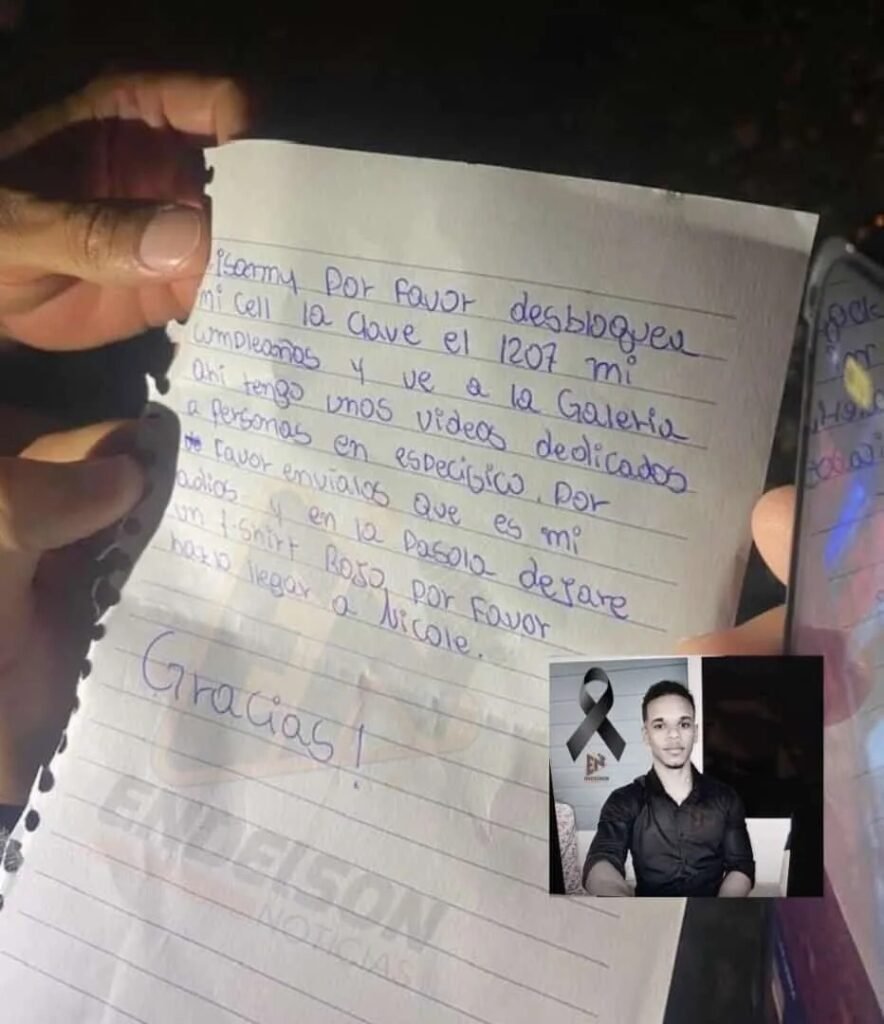 Por Favor desbloquea
mi cell la clave el 1207 mi
cumpleaños y ve a la Galeria
ahi tengo unos videos dedicados
a personas en especifico. Por
favor envialos que es mi
adios y en la pasola dejare
un t-shirt Rojo por Favor
hazlo llegar a Nicole.
Gracias!
EN
ENDEISON
NOTICIAS